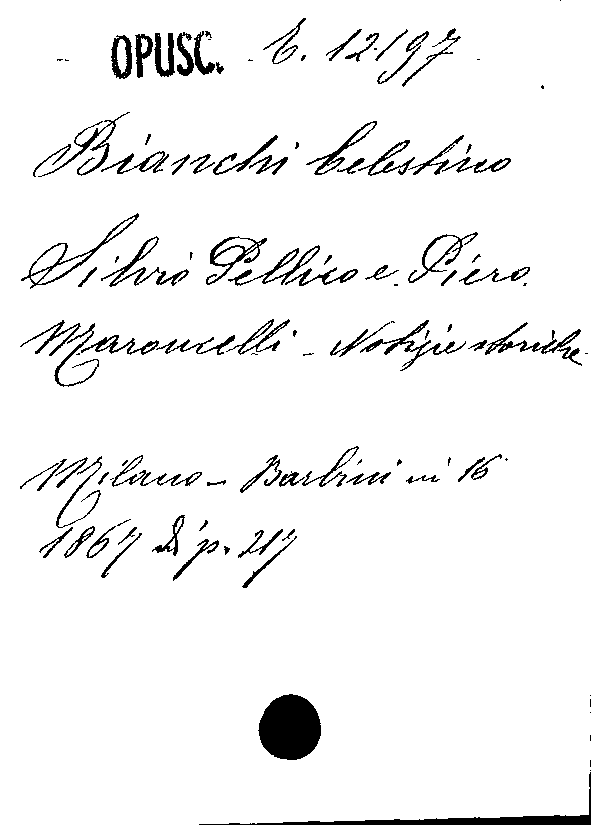 OPUSC. E. 12197
Bianchi Celestino
Silvio Pellico e Piero
Maroncelli - Notizie storiche
Milano - Barbini in 16
1867 di p. 217